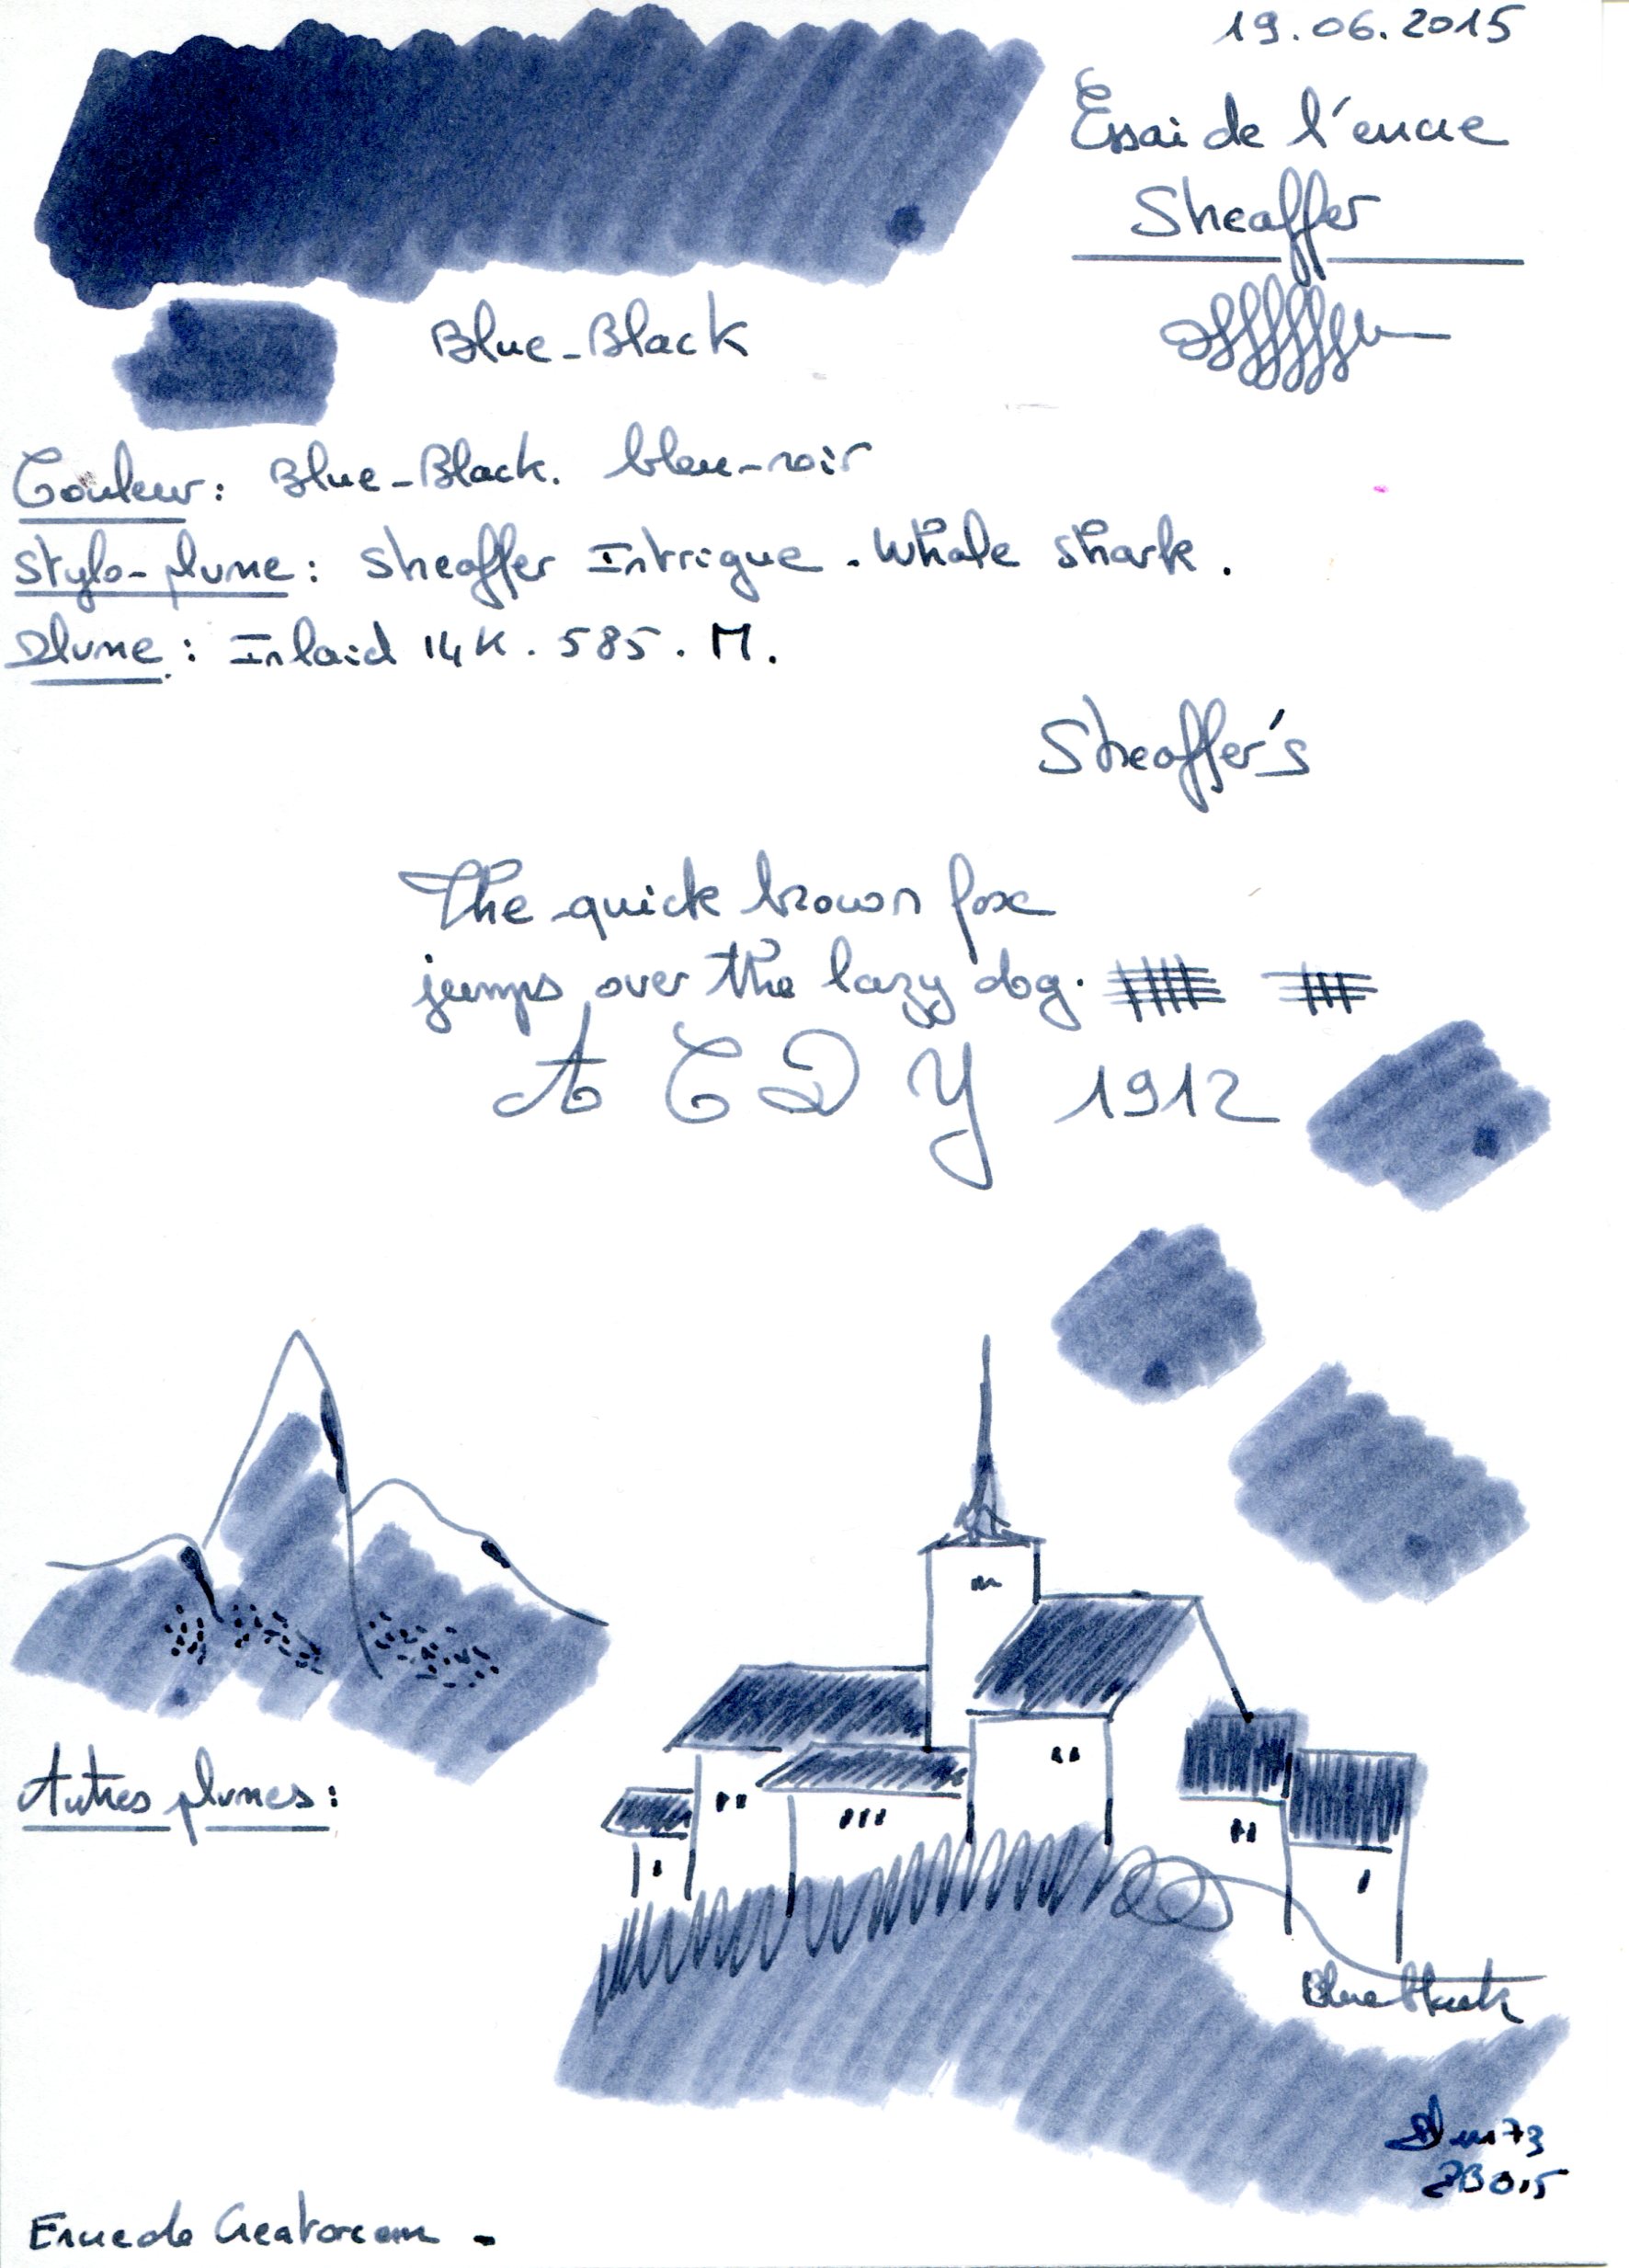 19.06.2015
Essai de l'encre
Sheaffer
Blue-Black
Couleur: Blue-Black. bleu-noir
Stylo-plume: Sheaffer Intrigue. Whale Shark.
Plume: Inlaid 14K. 585. M.
Sheaffer's
The quick brown fox
jumps over the lazy dog.
A C D Y 1912
Autres plumes:
Blue Black
Encre de